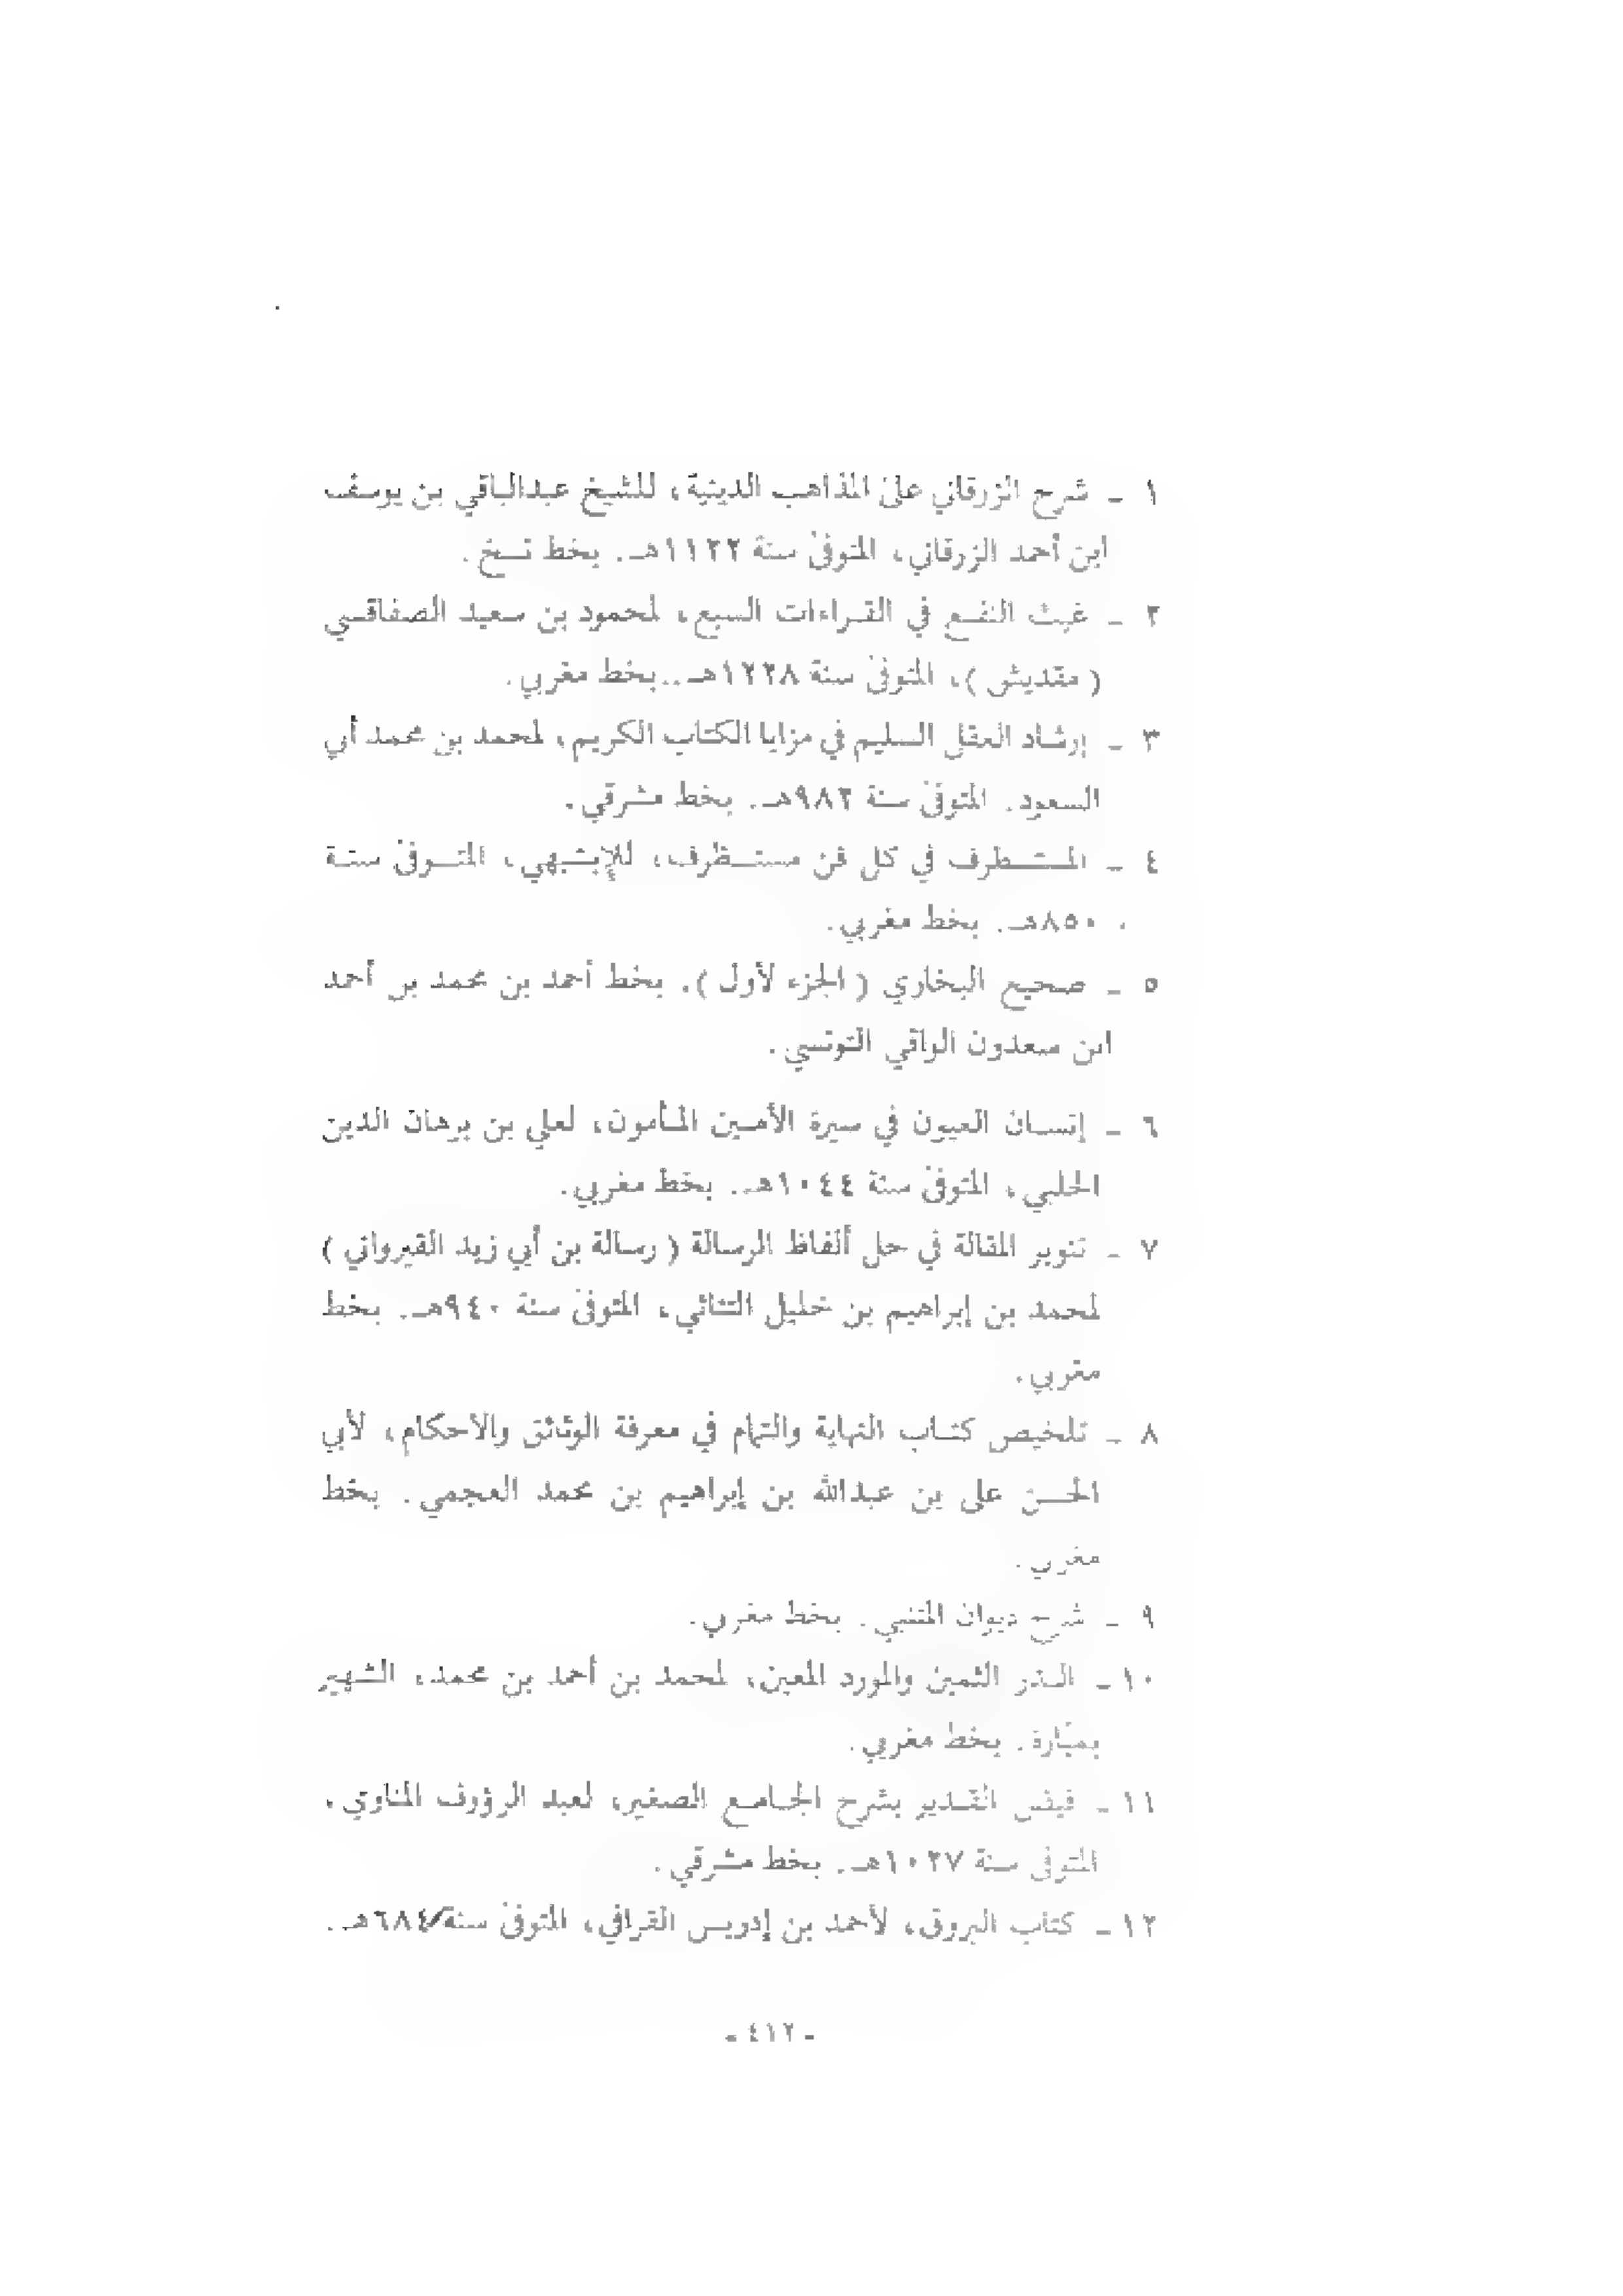 ١ ـ شرح الزرقاني على المذاهب الدينية، للشيخ عبدالباقي بن يوسف
ابن أحمد الزرقاني، المتوفى سنة ١١٢٢هـ. بخط نسخ.
٢ ـ غيث النفع في القراءات السبع، لمحمود بن سعيد الصفاقسي
( مقديش )، المتوفى سنة ١٢٢٨هـ. بخط مغربي.
٣ ـ إرشاد العقل السليم في مزايا الكتاب الكريم، لمحمد بن محمد أبي
السعود. المتوفى سنة ٩٨٢هـ. بخط مشرقي.
٤ ـ المستطرف في كل فن مستظرف، للإبشيهي، المتوفى سنة
٨٥٠هـ. بخط مغربي.
٥ ـ صحيح البخاري ( الجزء لأول ). بخط أحمد بن محمد بن أحمد
ابن سعدون الواقي التونسي.
٦ ـ إنسان العيون في سيرة الأمين المأمون، لعلي بن برهان الدين
الحلبي، المتوفى سنة ١٠٤٤هـ. بخط مغربي.
٧ ـ تنوير المقالة في حل ألفاظ الرسالة ( رسالة بن أبي زيد القيرواني )
لمحمد بن إبراهيم بن خليل التتائي، المتوفى سنة ٩٤٠هـ. بخط
مغربي.
٨ ـ تلخيص كتاب النهاية والتمام في معرفة الوثائق والاحكام، لأبي
الحسن على بن عبدالله بن إبراهيم بن محمد العجمي. بخط
مغربي.
٩ ـ شرح ديوان المتنبي. بخط مغربي.
١٠ ـ الدر الثمين والمورد المعين، لمحمد بن أحمد بن محمد، الشهير
بميّارة. بخط مغربي.
١١ ـ فيض القدير بشرح الجامع الصغير، لعبد الرؤوف المناوي،
المتوفى سنة ١٠٢٧هـ. بخط مشرقي.
١٢ ـ كتاب البروق، لأحمد بن إدريس القرافي، المتوفى سنة/٦٨٤هـ.
ـ ٤١٢ ـ